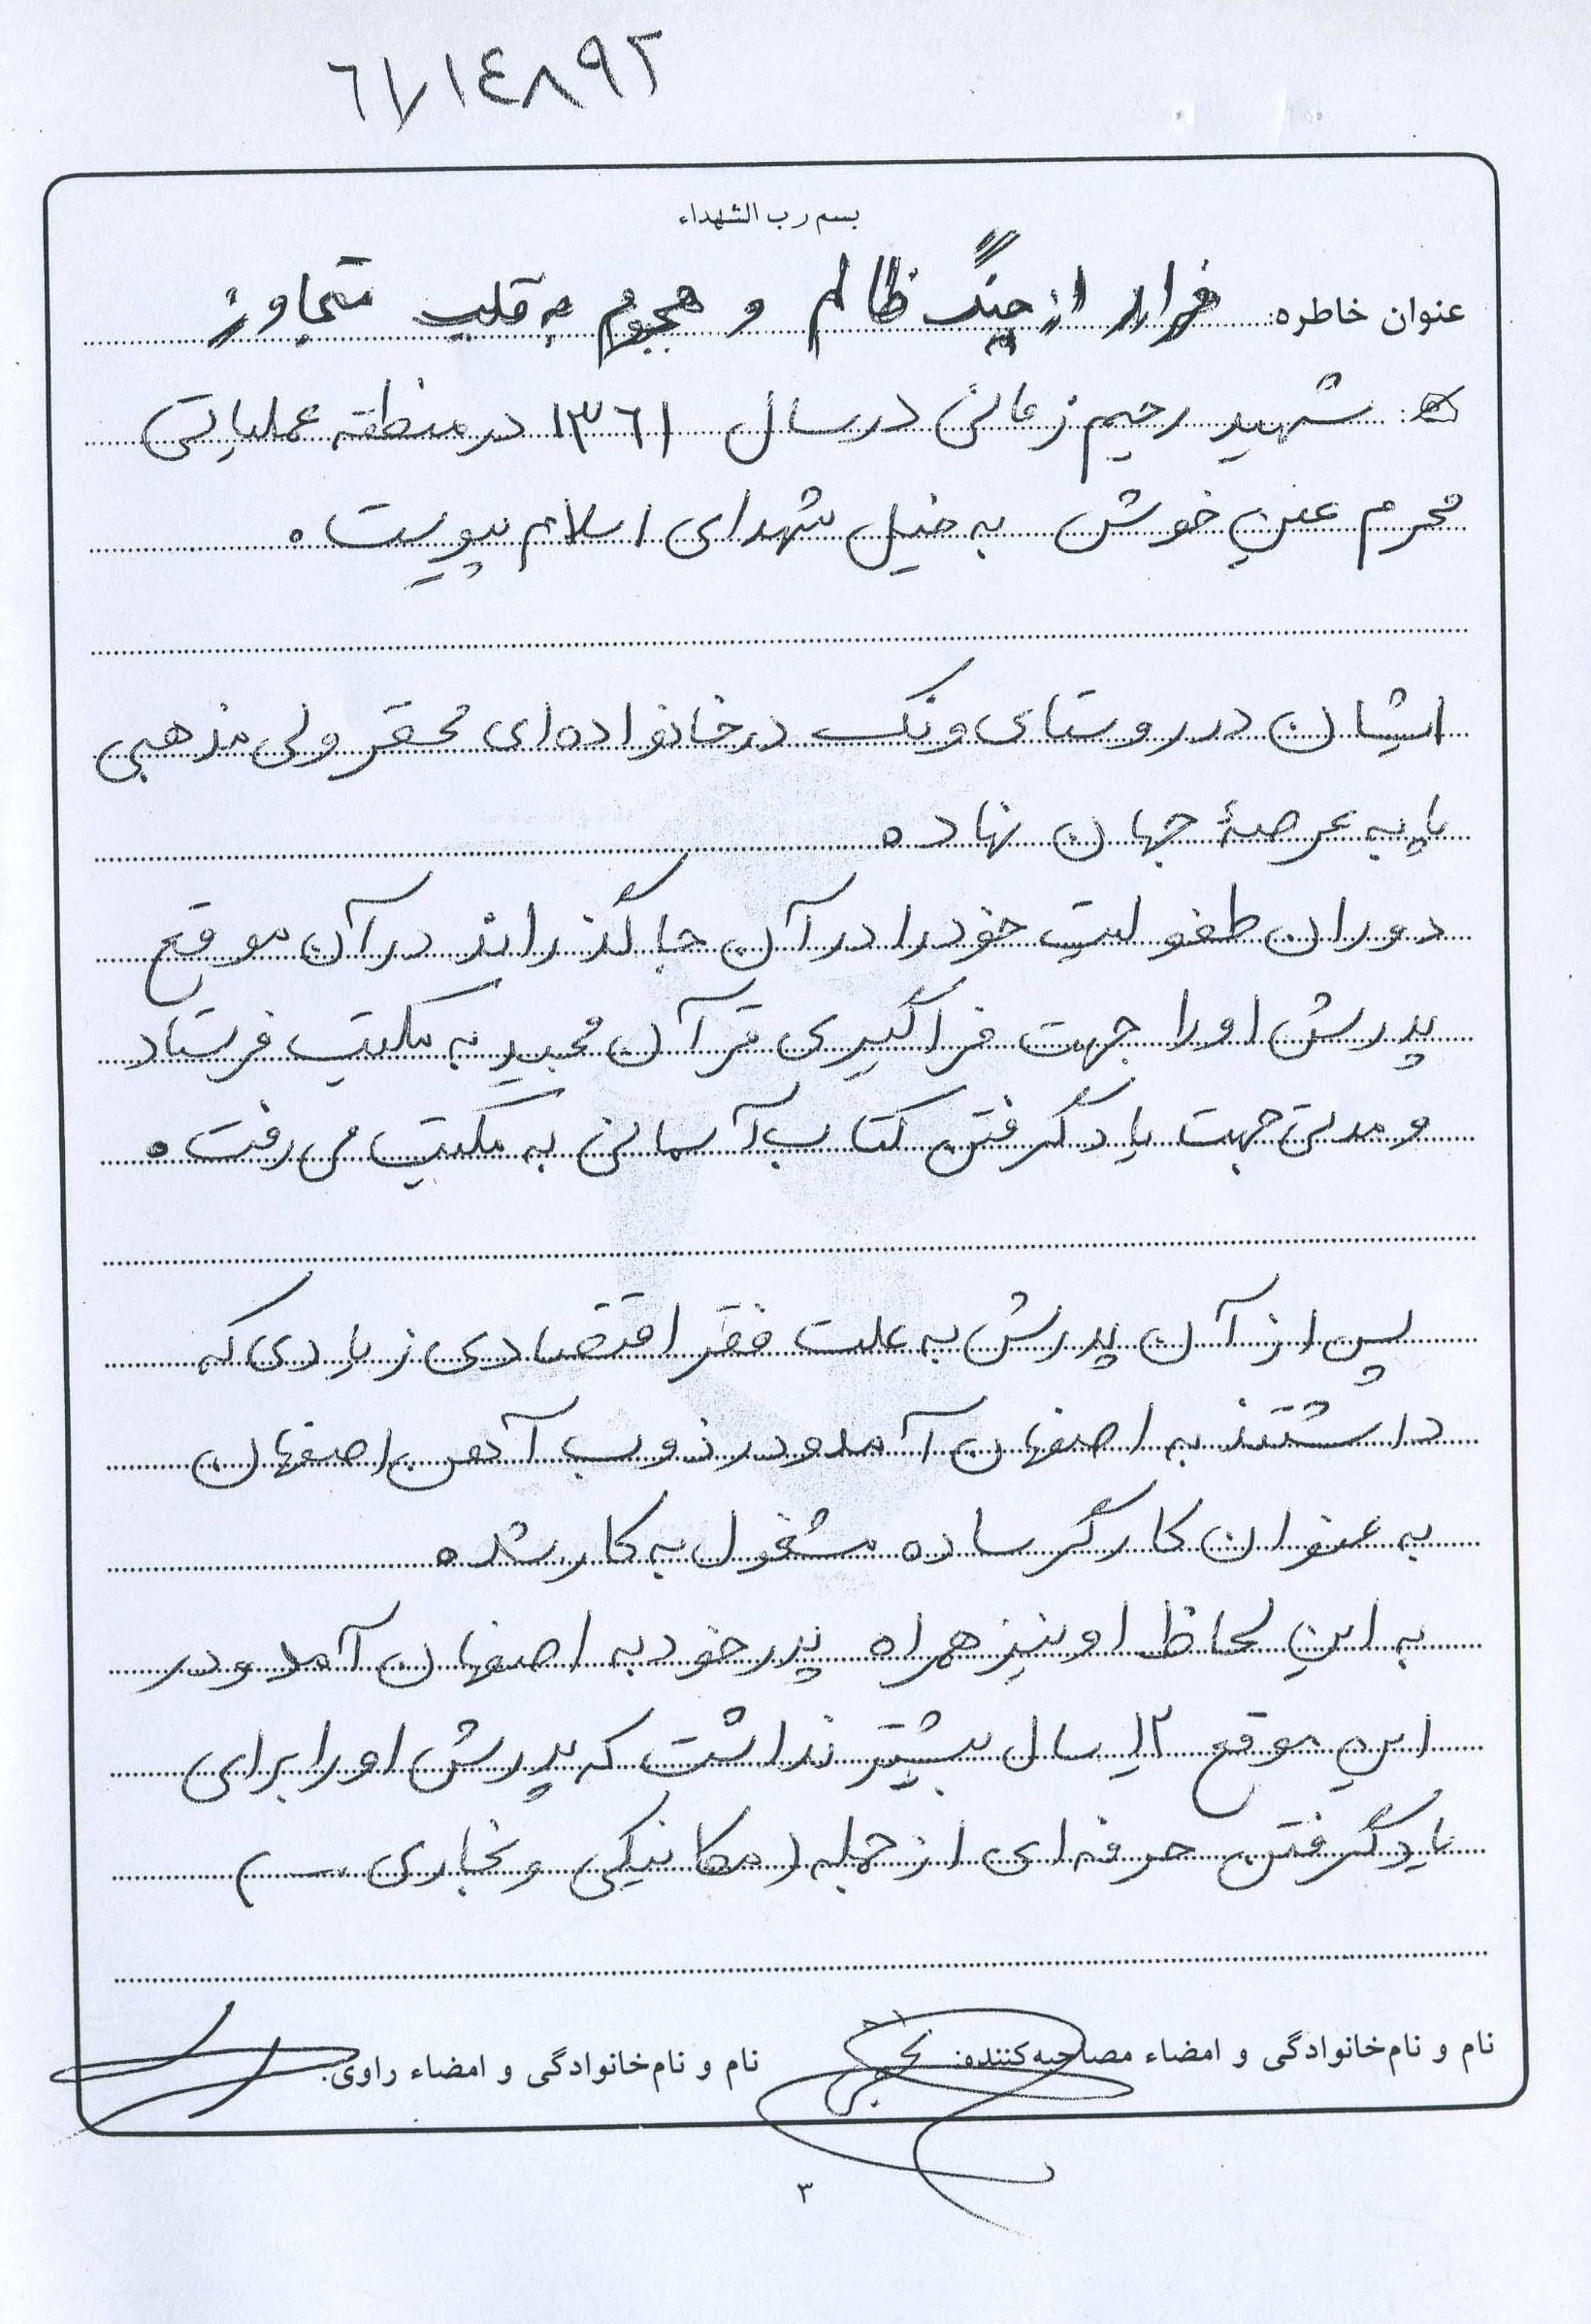 ٦١/١٤٨٩٢
بسم رب الشهداء
عنوان خاطره: فرار از چنگ ظالم و هجوم به قلب متجاوز
شهید رحیم زمانی در سال ١٣٦١ در منطقه عملیاتی
محرم عین خوش به خیل شهدای اسلام پیوست.
ایشان در روستای ونک در خانواده‌ای محقر ولی مذهبی
پا به عرصهٔ جهان نهاده
دوران طفولیت خود را در آن جا گذراند در آن موقع
پدرش او را جهت فراگیری قرآن مجید به مکتب فرستاد
و مدتی جهت یاد گرفتن کتاب آسمانی به مکتب می رفت.
پس از آن پدرش به علت فقر اقتصادی زیادی که
داشتند به اصفهان آمد و در ذوب آهن اصفهان
به عنوان کارگر ساده مشغول به کار شده
به این لحاظ او نیز همراه پدر خود به اصفهان آمد و در
این موقع ١٢ سال بیشتر نداشت که پدرش او را برای
یاد گرفتن حرفه‌ای از جمله (مکانیکی و نجاری )
نام و نام‌خانوادگی و امضاء مصاحبه‌کننده: نام و نام‌خانوادگی و امضاء راوی:
۳